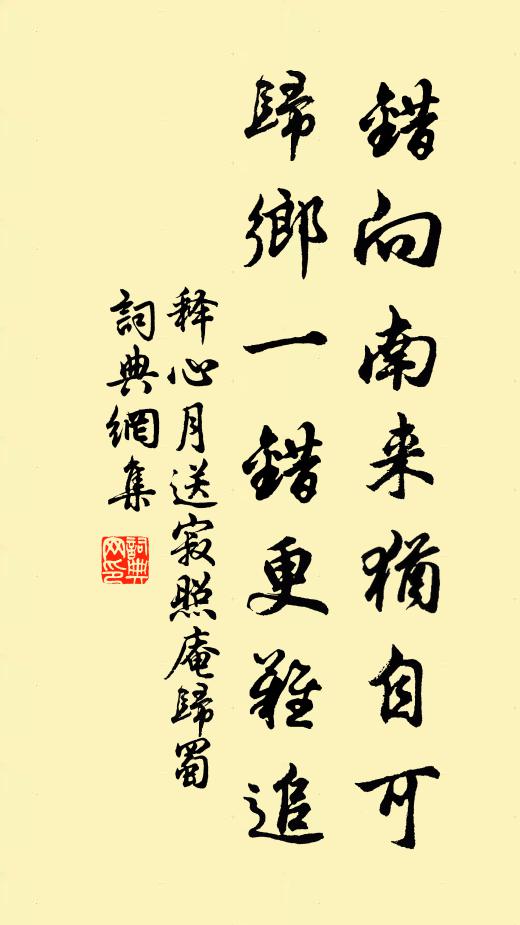 錯向南来猶自可
歸鄉一錯更難追
释心月送寂照庵歸蜀
詞典網集
詞典
网印